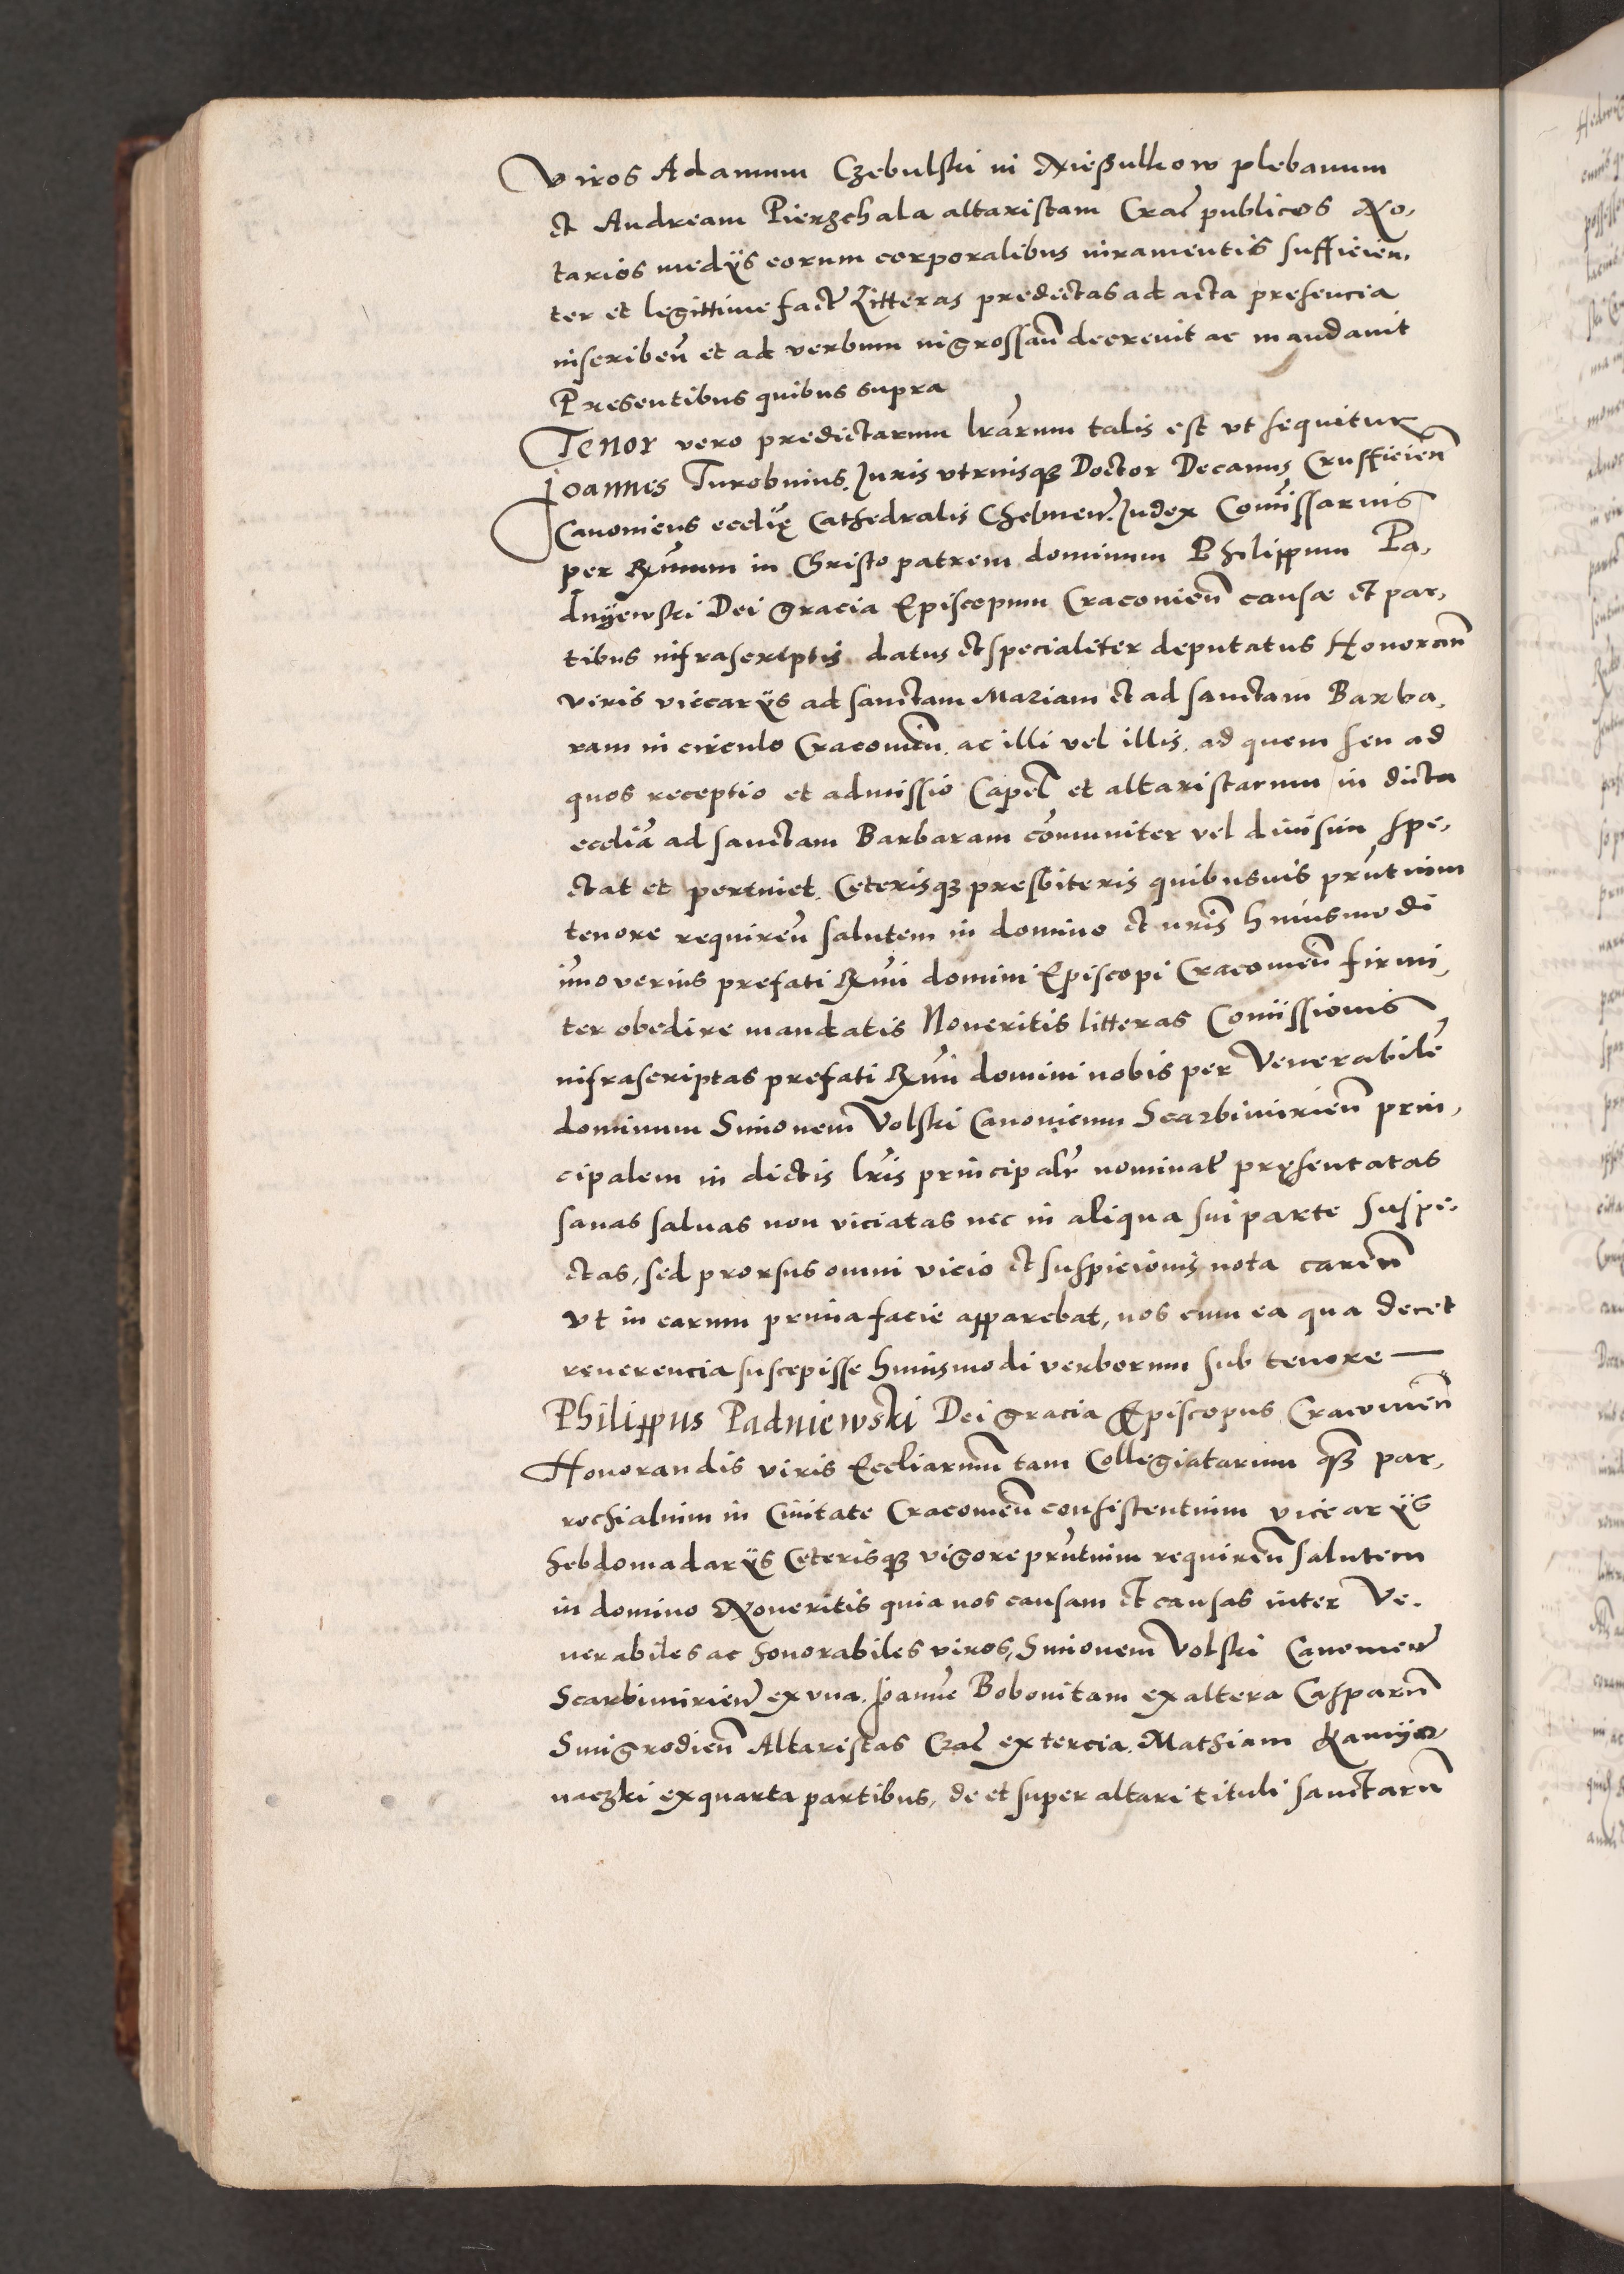 Viros Adamum Czebulski in Nießulkow plebanum
et Andream Pierzchala altaristam Crac̃ publicos No,
tarios medijs eorum corporalibus iuramentis sufficien̄,
ter et legittime fact̃ Litteras predictas ad acta presencia
inscriben̄ et ad verbum ingrossan̄ decrevit ac mandavit
Presentibus quibus supra
Tenor vero predictarum lrārum talis est vt sequitur
Joannes Turobinius. Juris vtriusq3 Doctor Decanus Crussficien̄
Canonicus ecclię Cathedralis Chelmen̄. Judex Com̄issarius
per Rm̄um in Christo patrem dominum Philippum Pa,
dnyewski Dei gracia Episcopum Cracovien̄ causæ et par,
tibus infrascriptis datus et specialiter deputatus Honoran̄
viris viccarijs ad sanctam Mariam et ad sanctam Barba,
ram in circulo Cracovien̄. ac illi vel illis. ad quem seu ad
quos receptio et admissio Capel̄ et altaristarum in dicta
ecclia ad sanctam Barbaram com̄uniter vel divisim spe,
ctat et pertinet. Ceterisq3 presbiteris quibusvis prn̄tium
tenore requiren̄ salutem in domino et nris̄ huiusmodi
imo verius prefati Rm̄i domini Episcopi Cracovien̄ firmi,
ter obedire mandatis Noveritis litteras Com̄issionis
infrascriptas prefati Rm̄i domini nobis per Venerabilē
dominum Simonem Volski Canonicum Scarbimirien̄ prin,
cipalem in dictis lris̄ principalr̄ nominat̃ pręsentatas
sanas salvas non viciatas nec in aliqua sui parte suspe,
ctas, sed prorsus omni vicio et suspicionis nota caren̄
vt in earum prima facie apparebat, nos cum ea qua decet
reverencia suscepisse huiusmodi verborum sub tenore —
Philippus Padniewski Dei gracia Episcopus Cracovien̄
Honorandis viris Eccliarum̄ tam Collegiatarum q3̄ par,
rochialium in Civitate Cracovien̄ consistentium vicearijs
hebdomadarijs Ceterisq3 vigore prn̄tium requiren̄ salutem
in domino Noveritis quia nos causam et causas inter Ve,
nerabiles ac honorabiles viros, Simonem Volski Canonicū
Scarbimirien̄ ex vna. Joannē Bobovitam ex altera Casparū
Smigrodien̄ Altaristas Crac̃ ex tercia. Mathiam Ramyo
naczki ex quarta partibus, de et super altari tituli sanctarū